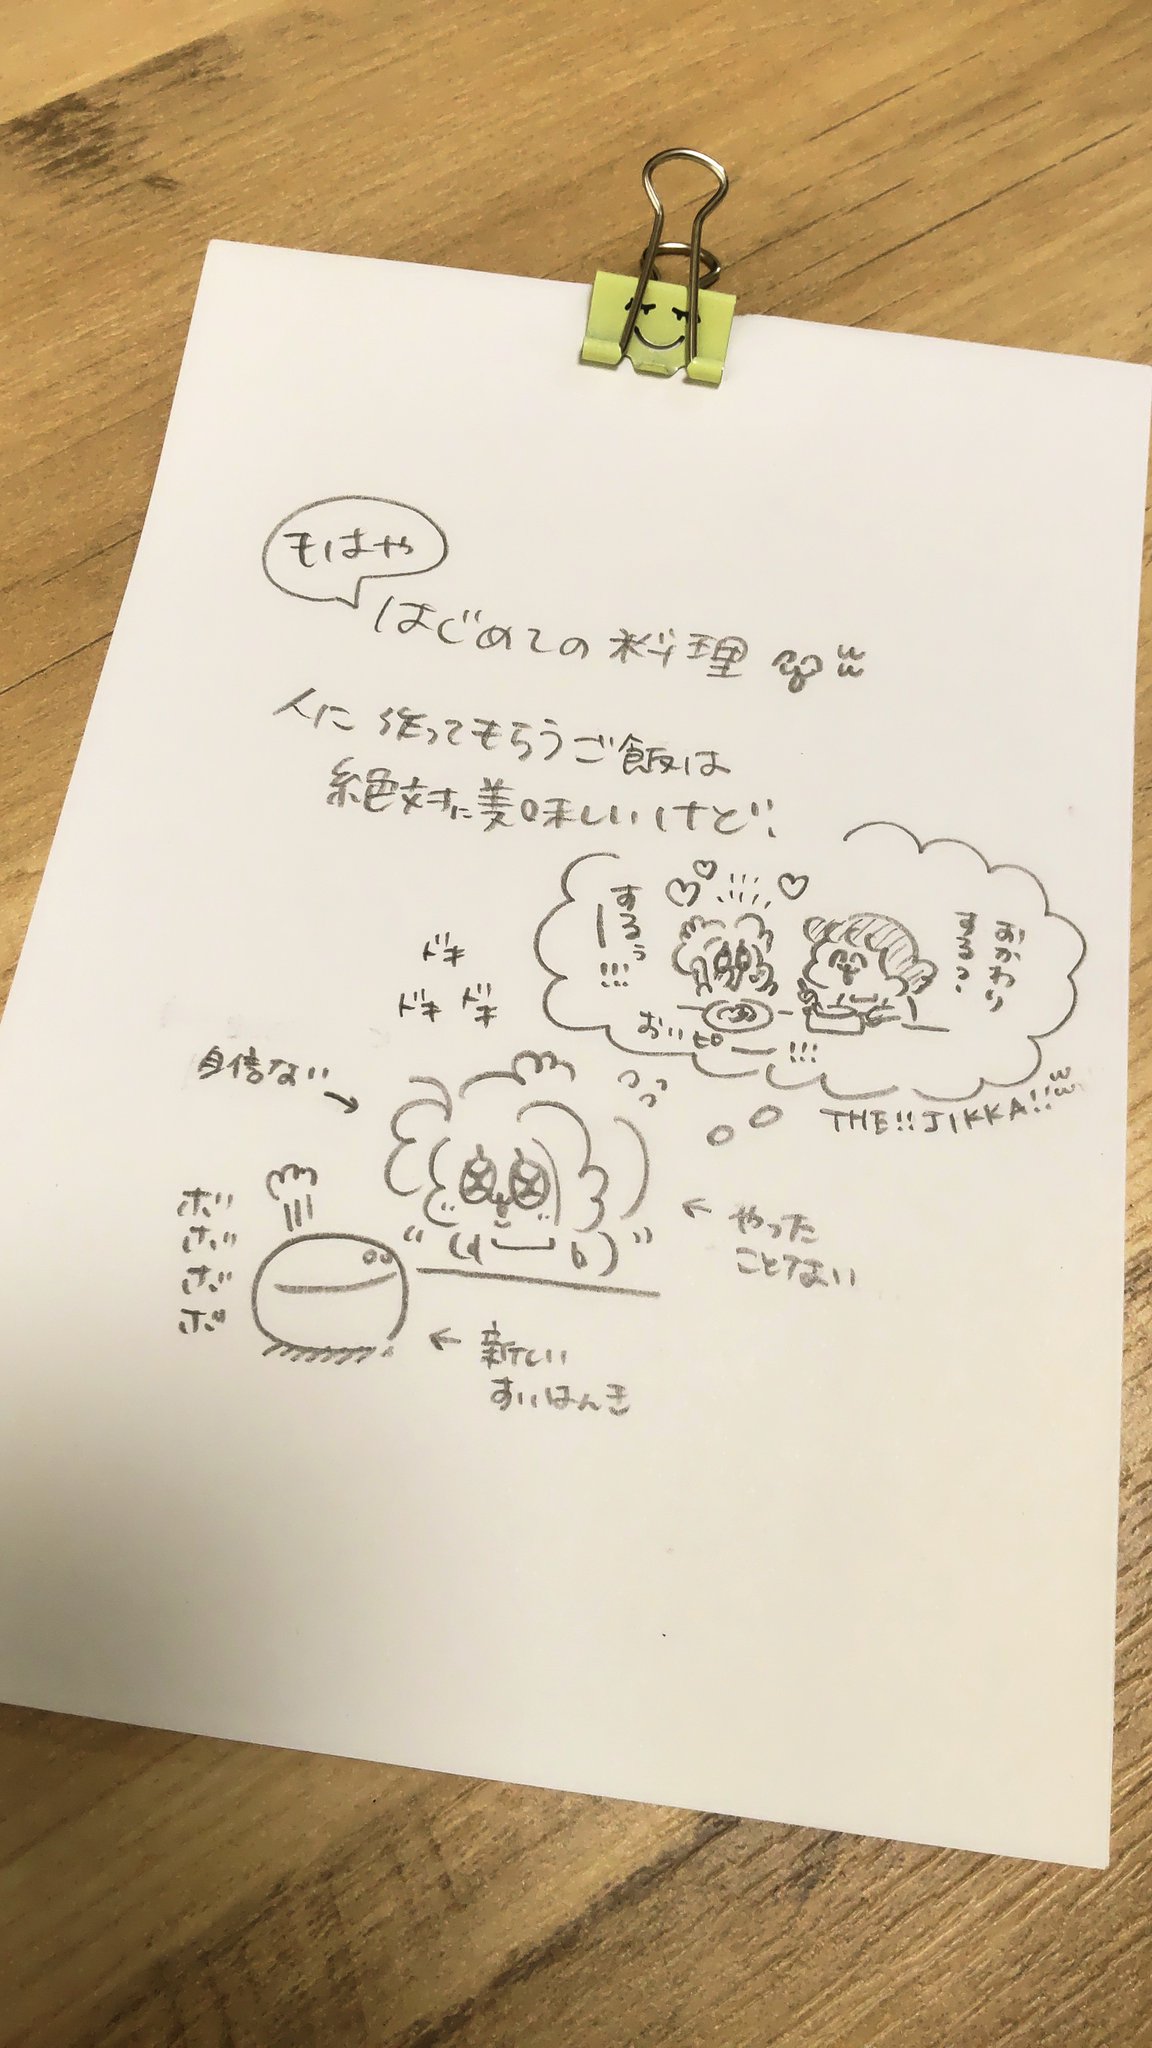 もはや
はじめての料理 ww
人に作ってもらうご飯は
絶対に美味しいけど…
おかわり
するっ?
するぅ
ー!!!
おいピー!!!
THE!!JIKKA!!ww
ドキ
ドキ ドキ
自信ない
やった
ことない
ボ
ボ
ボ
ボ
新しい
すいはんき